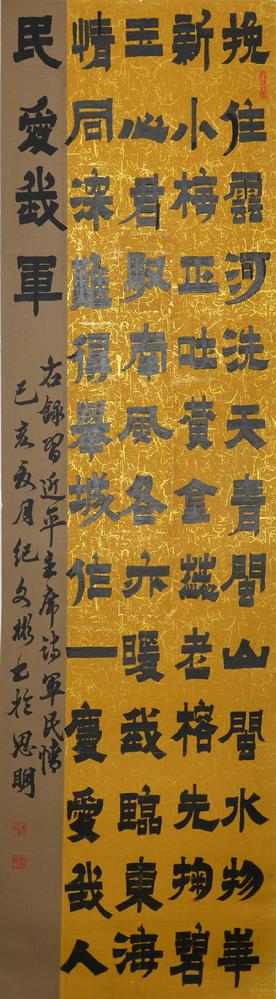 挽住雲河洗天青閩山閩水物華
新小梅正吐黃金蕊老榕先掬碧
玉心君馭南風冬亦暖我臨東海
情同深難得舉城作一慶愛我人
民愛我軍
右錄習近平主席詩軍民情
己亥夏月紀文彬書於思明